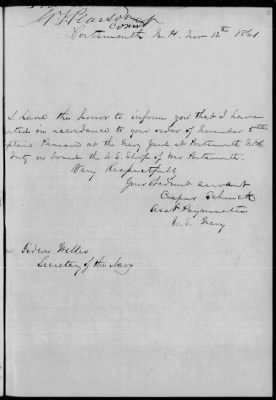 Portsmouth N. H. Nov 12th 1861
I have the honor to inform you that I have
in accordance to your order of November 5th
at the Navy Yard at Portsmouth N.H.
duty on board the U.S. Sloop of War Portsmouth.
Very Respectfully
Your Obedient Servant
Casper Schenck
Asst Paymaster
U.S. Navy
Gideon Welles
Secretary of the Navy